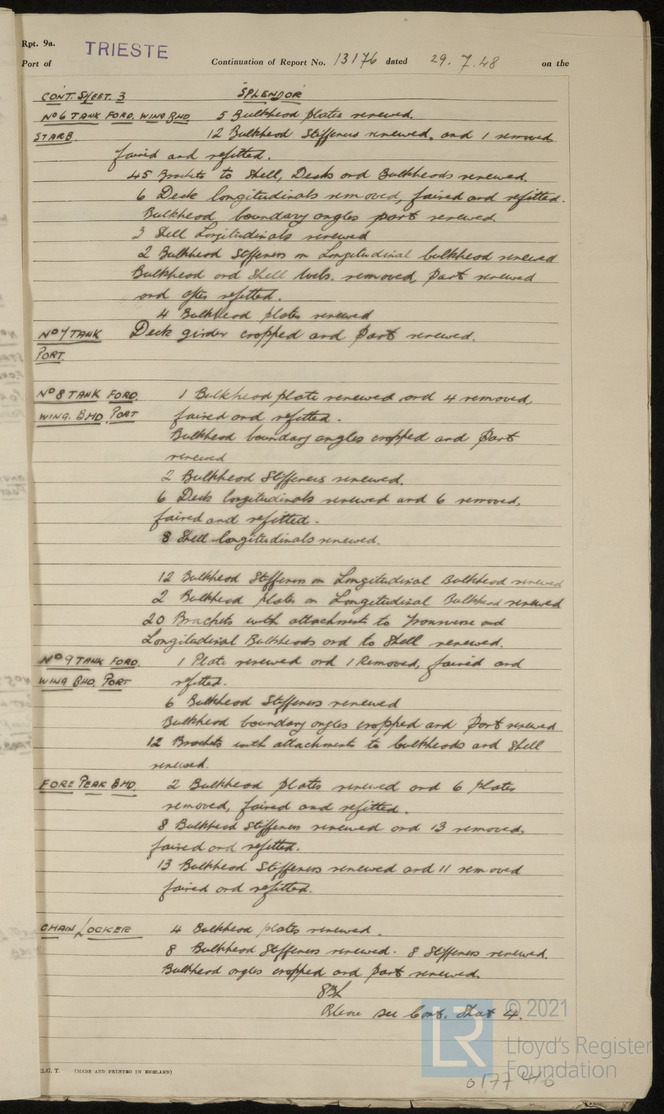 Rpt. 9a.
TRIESTE
Port of
Continuation of Report No. 13176 dated 29.7.48 on the
CONT. SHEET. 3
"SPLENDOR"
No 6 TANK FORD. WING BHD 5 Bulkhead plates renewed.
STARB. 12 Bulkhead Stiffeners renewed, and 1 removed
faired and refitted.
45 Brackets to Shell, Decks and Bulkheads renewed.
6 Deck longitudinals removed, faired and refitted.
Bulkhead boundary angles part renewed.
3 Shell Longitudinals renewed
2 Bulkhead Stiffeners on Longitudinal bulkhead renewed
Bulkhead and Shell removed, part renewed
and after refitted.
4 Bulkhead plates renewed
No 7 TANK Deck girder cropped and part renewed.
PORT.
No 8 TANK FORD. 1 Bulkhead plate renewed and 4 removed,
WING. BHD. PORT faired and refitted.
Bulkhead boundary angles cropped and part
renewed
2 Bulkhead Stiffeners renewed.
6 Deck longitudinals renewed and 6 removed,
faired and refitted.
8 Shell longitudinals renewed.
12 Bulkhead Stiffeners on Longitudinal Bulkhead renewed
2 Bulkhead plates on Longitudinal Bulkhead renewed
20 Brackets with attachments to Transverse and
Longitudinal Bulkheads and to Shell renewed.
No 9 TANK FORD. 1 Plate renewed and 1 Removed, faired and
WING BHD. PORT refitted.
6 Bulkhead Stiffeners renewed
Bulkhead boundary angles cropped and Part renewed
12 Brackets with attachments to bulkheads and Shell
renewed.
FORE PEAK BHD. 2 Bulkhead plates renewed and 6 plates
removed, faired and refitted.
8 Bulkhead Stiffeners renewed and 13 removed,
faired and refitted.
13 Bulkhead Stiffeners renewed and 11 removed
faired and refitted.
CHAIN LOCKER 4 Bulkhead plates renewed.
8 Bulkhead Stiffeners renewed. 8 Stiffeners renewed.
Bulkhead angles cropped and part renewed.
Please see Cont. Sheet 4.
LR
© 2021
Lloyd's Register
Foundation
(MADE AND PRINTED IN ENGLAND)
0177